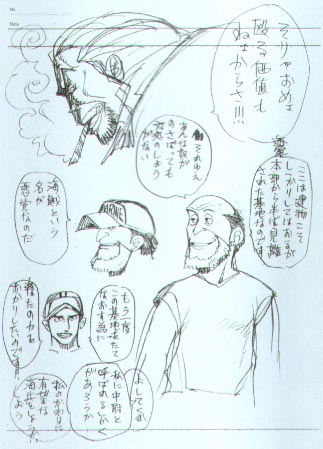 そりゃおめェ
殴る価値も
ねェからさ!!!
それゆえ
あんな奴が
のさばっても
対処のしよう
がない
ここは建物こそ
しっかりしてはあるが
本部から半ば見離
された基地なのです
海賊という
名が
もう一度
この基地をたて
なおす為に
よしてくれ
私に中尉と
呼ばれるしかく
があろうか
あなたの力を
おかりしたいのです!!
私のかわりに
有望な
海兵をしょうか
しよう